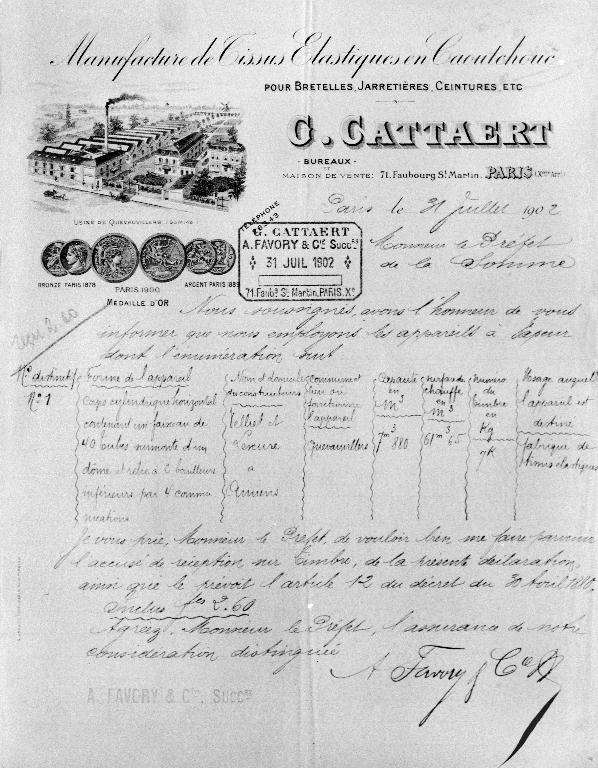 Manufacture de Tissus Elastiques en Caoutchouc
POUR BRETELLES, JARRETIÈRES, CEINTURES, ETC
G. CATTAERT
- BUREAUX -
ET
MAISON DE VENTE: 71. Faubourg St Martin. PARIS (Xme Arrt)
USINE DE QUEVAUVILLERS (SOMME)
TÉLÉPHONE
G. CATTAERT
A. FAVORY & Cie Succrs
31 JUIL 1902
71. Faubg St Martin, PARIS. Xe
BRONZE PARIS 1878
PARIS 1900
ARGENT PARIS 1889
MÉDAILLE D'OR
Paris le 31 Juillet 1902
Monsieur le Préfet
de la Somme
Nous soussignés, avons l'honneur de vous
informer que nous employons les appareils à vapeur
dont l'énumération suit
No distinctif
No 1
Forme de l'appareil
Corps cylindrique horizontal
contenant un faisceau de
40 tubes surmonté d'un
dôme et relié à 2 bouilleurs
inférieurs par 4 commu
nications
Nom et domicile
du constructeurs
Tellier et
à
Amiens
Commune et
lieu où
fonctionne
l'appareil
Quevauvillers
Capacité
en
M3
7m3 880
Surface de
chauffe
en
M3
61m3 65
Numéro
du
timbre
en
Kg
7K
Usage auquel
l'appareil est
destiné
fabrique de
tissus élastiques
Je vous prie, Monsieur le Préfet, de vouloir bien me faire parvenir
l'accusé de réception sur timbre, de la présente déclaration,
ainsi que le prévoit l'article 12 du décret du 30 avril 1880.
Inclus fcs 2.60
Agréez, Monsieur le Préfet, l'assurance de notre
considération distinguée
A Favory & Cie
A. FAVORY & Cie, Succrs